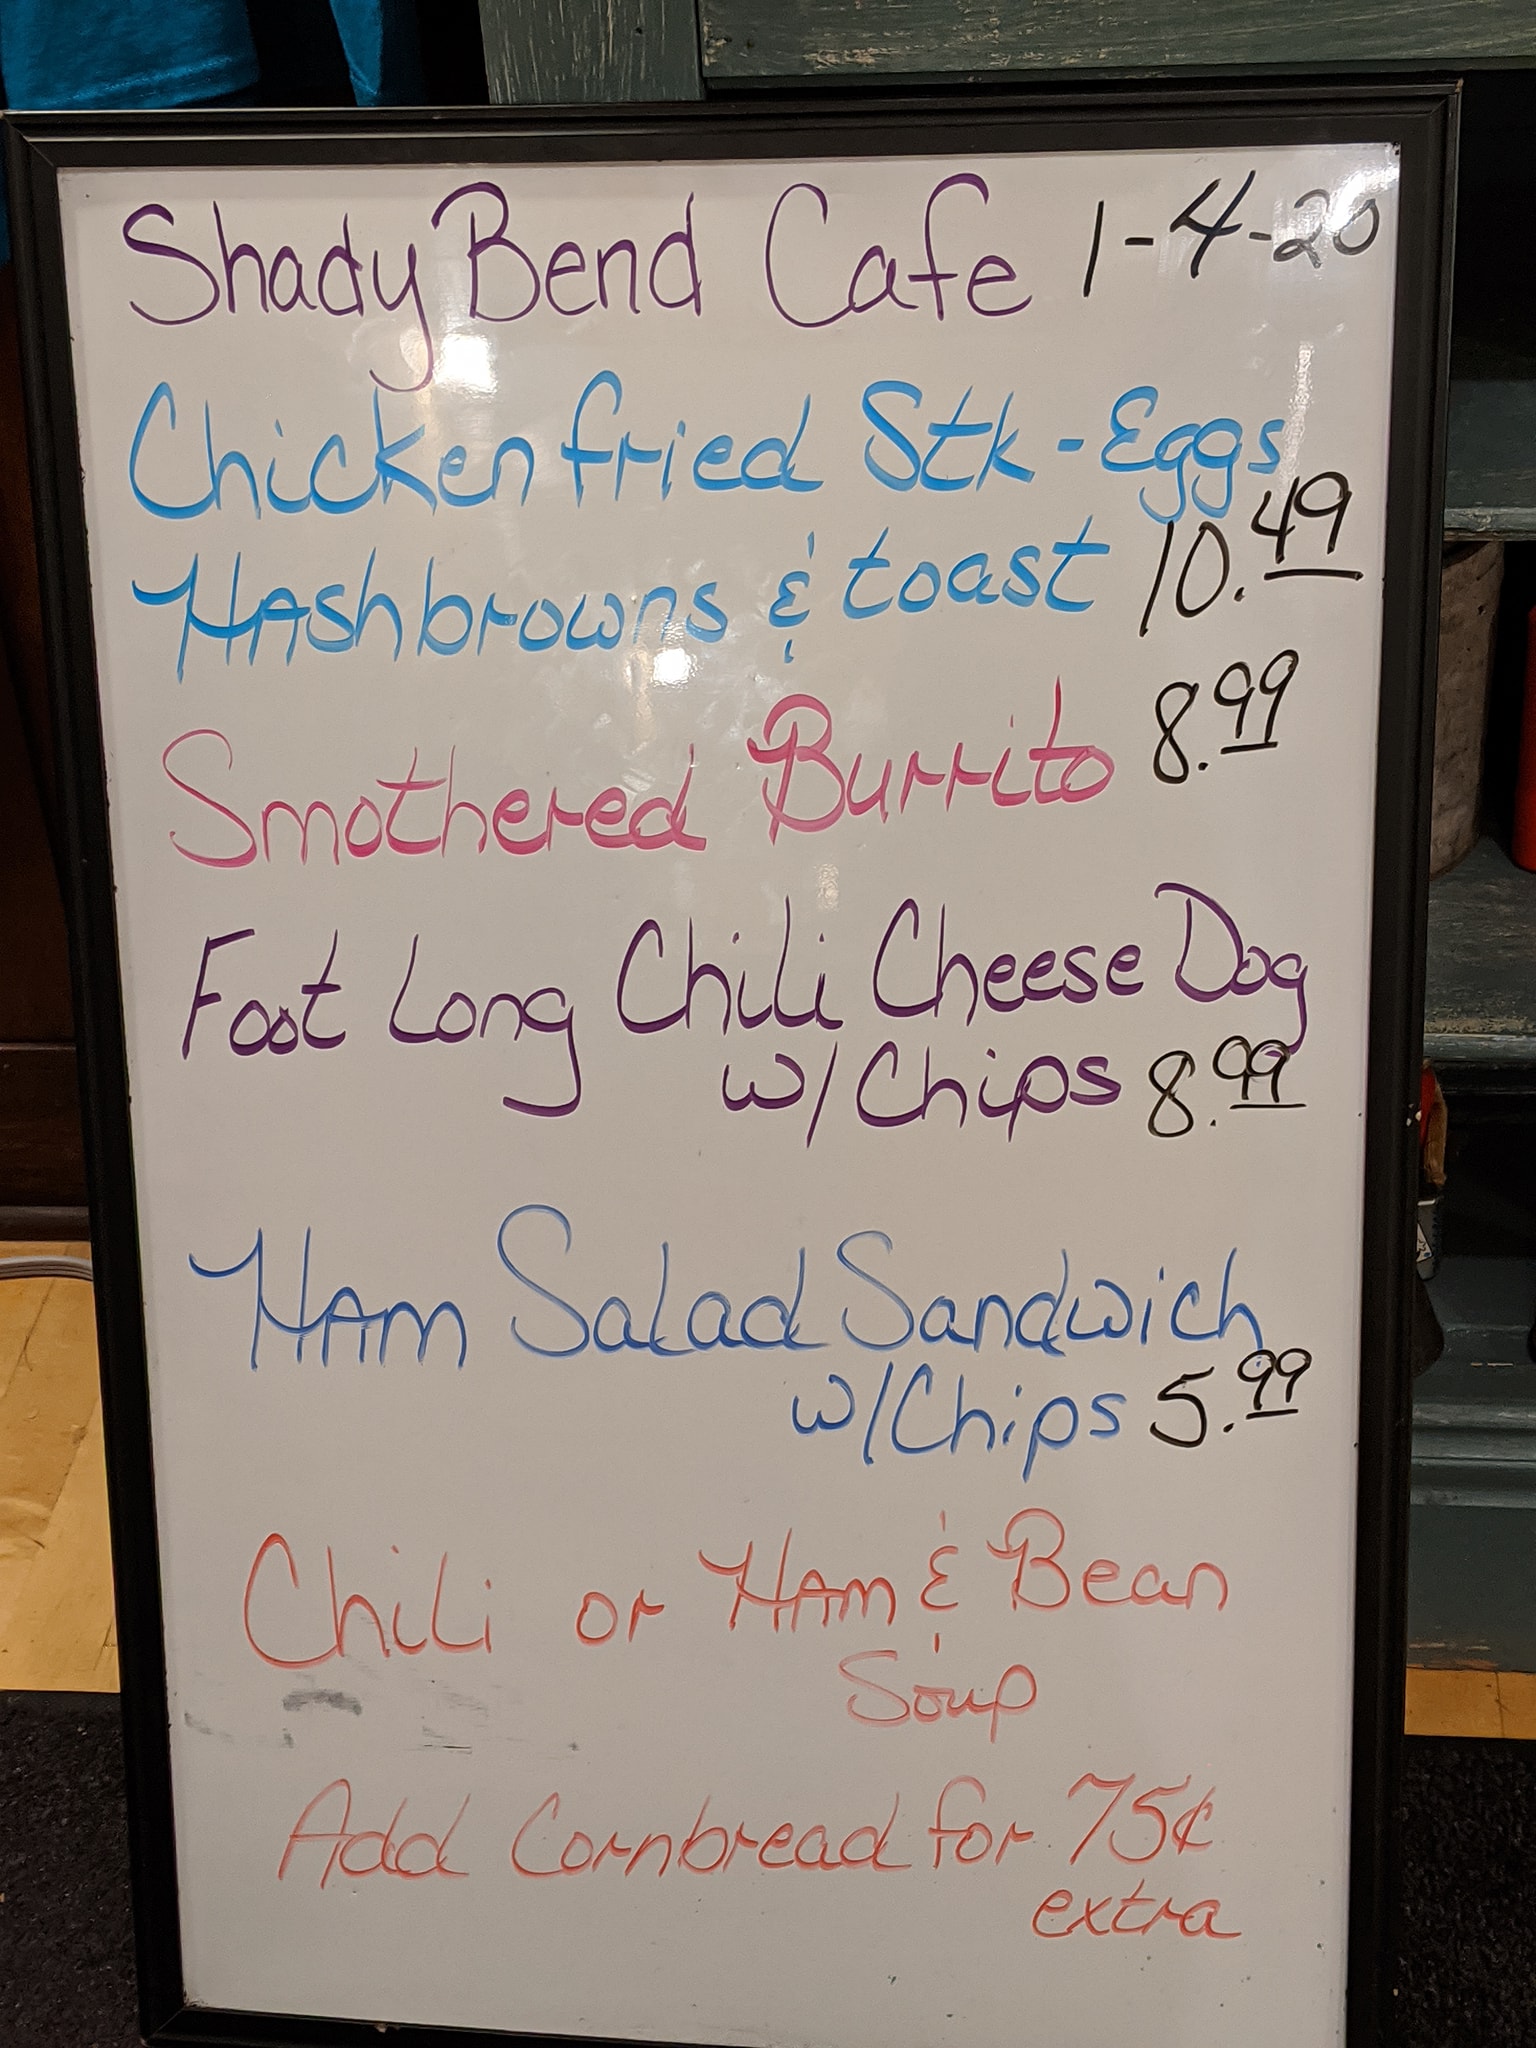 Shady Bend Cafe 1-4-20
Chicken fried Stk - Eggs
Hashbrowns & toast 10.49
Smothered Burrito 8.99
Foot Long Chili Cheese Dog
w/Chips 8.99
Ham Salad Sandwich
w/Chips 5.99
Chili or Ham & Bean
Soup
Add Cornbread for 75¢
extra